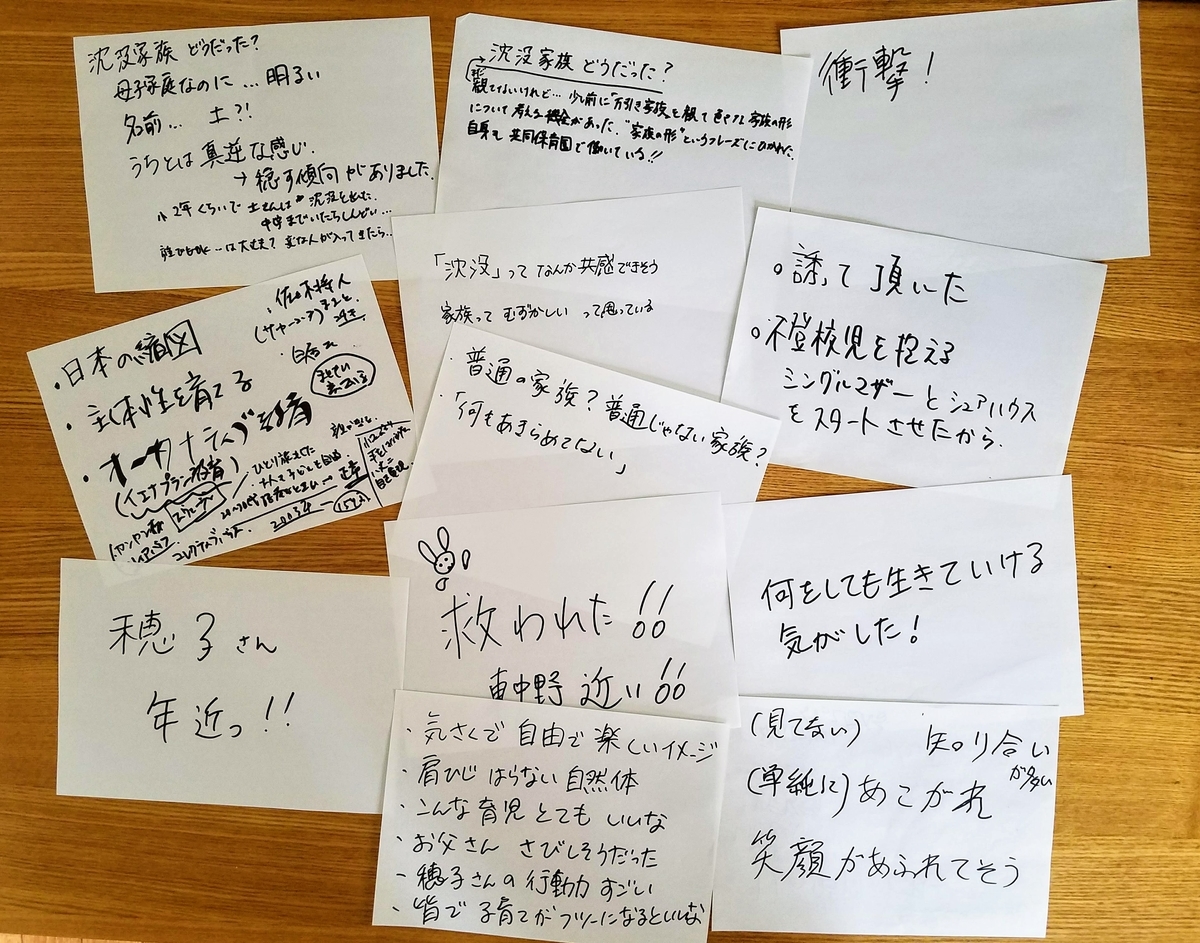 沈没家族 どうだった?
母子家庭なのに…明るい
名前… 土?!
うちとは真逆な感じ.
→ 穏す傾向がありました.
小2年くらいで 土さんは 沈没を出た.
中学までいたらしんどい…
は大丈夫? 変な人が入ってきたら…
沈没家族 どうだった?
観てないけれど… 少し前に「万引き家族」を観て 色々な 家族の形
について 考える機会があった. “家族の形”というフレーズにひかれた.
自身も 共同保育園で働いている!!
衝撃!
「沈没」って なんか共感できそう
家族って むずかしい って思っている
。誘って頂いた
。不登校児を抱える
シングルマザーとシェアハウス
をスタートさせたから.
・日本の縮図
・主体性を育てる
・オータナティブ教育
(イエナプラン教育)
ひとり旅
2003年
コレクティブハウス
・普通の家族? 普通じゃない家族?
・「何もあきらめてない」
救われた!!
東中野 近い!!
何をしても生きていける
気がした!
穂子さん
年近っ!!
・気さくで 自由で 楽しいイメージ
・肩ひじ はらない 自然体
・こんな育児 とても いいな
・お父さん さびしそうだった
・穂子さんの行動力 すごい
・皆で 子育てが フツーになるといいな
(見てない) 知り合い
が多い
(単純に) あこがれ
笑顔があふれてそう